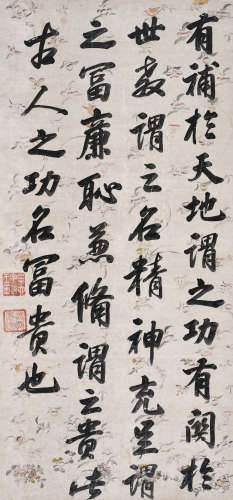 有補於天地謂之功有関於
世教謂之名精神充足謂
之冨廉恥兼脩謂之貴此
古人之功名冨貴也